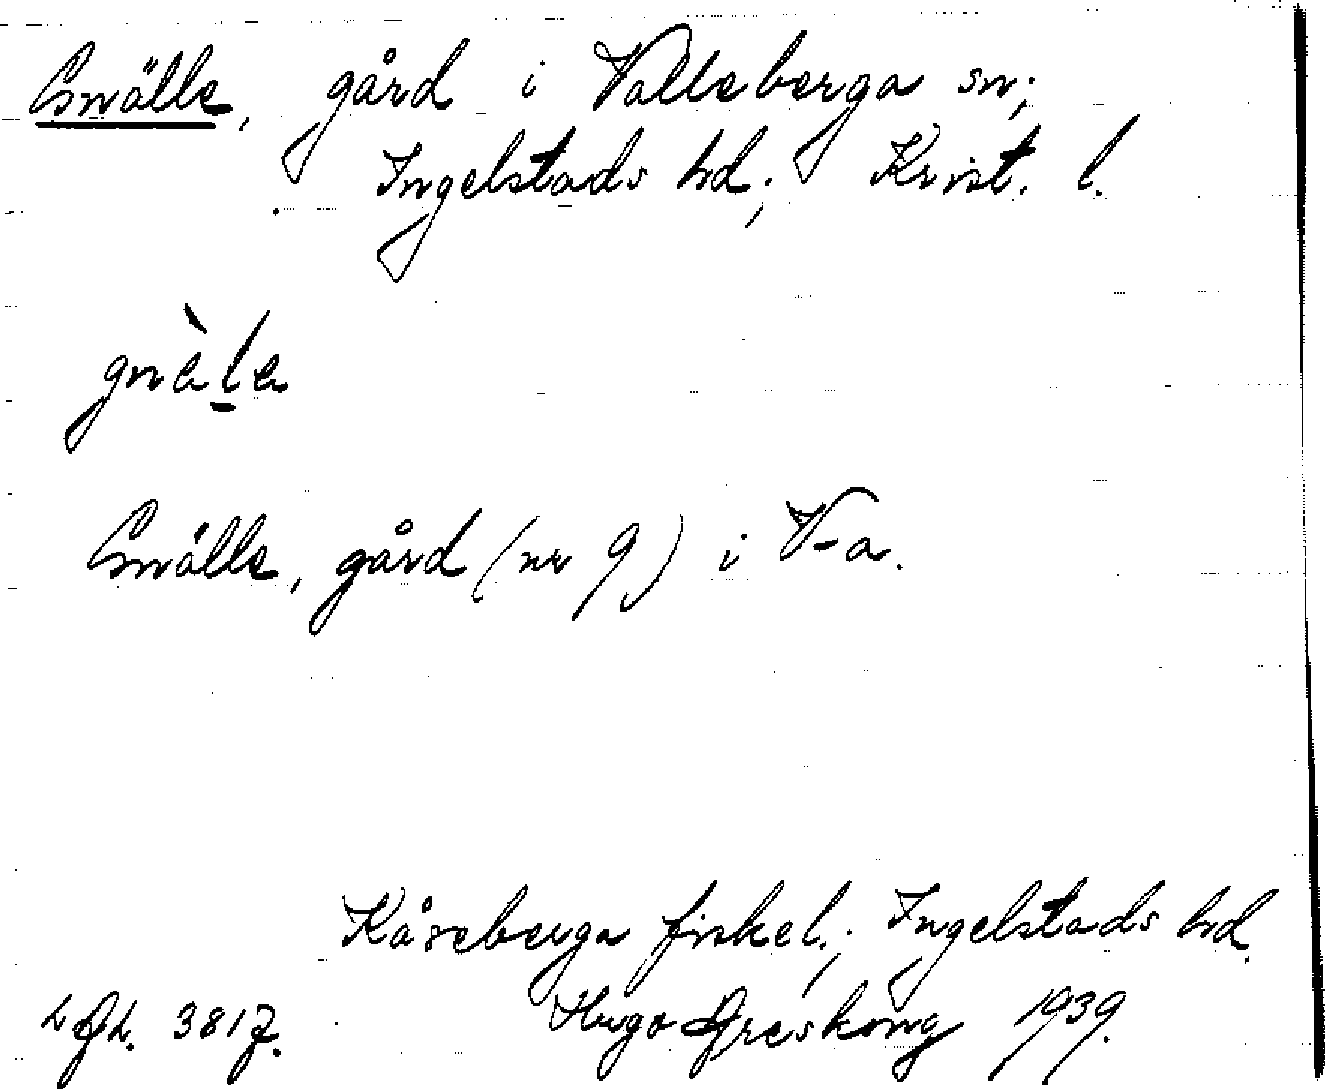 Gnälle, gård i Valleberga sn;
Ingelstads hd; Krist. l.
gnàla
Gnälle, gård (nr 9) i V-a.
Kåseberga fiskel.; Ingelstads hd.
3817. Hugo Areskoug 1939.